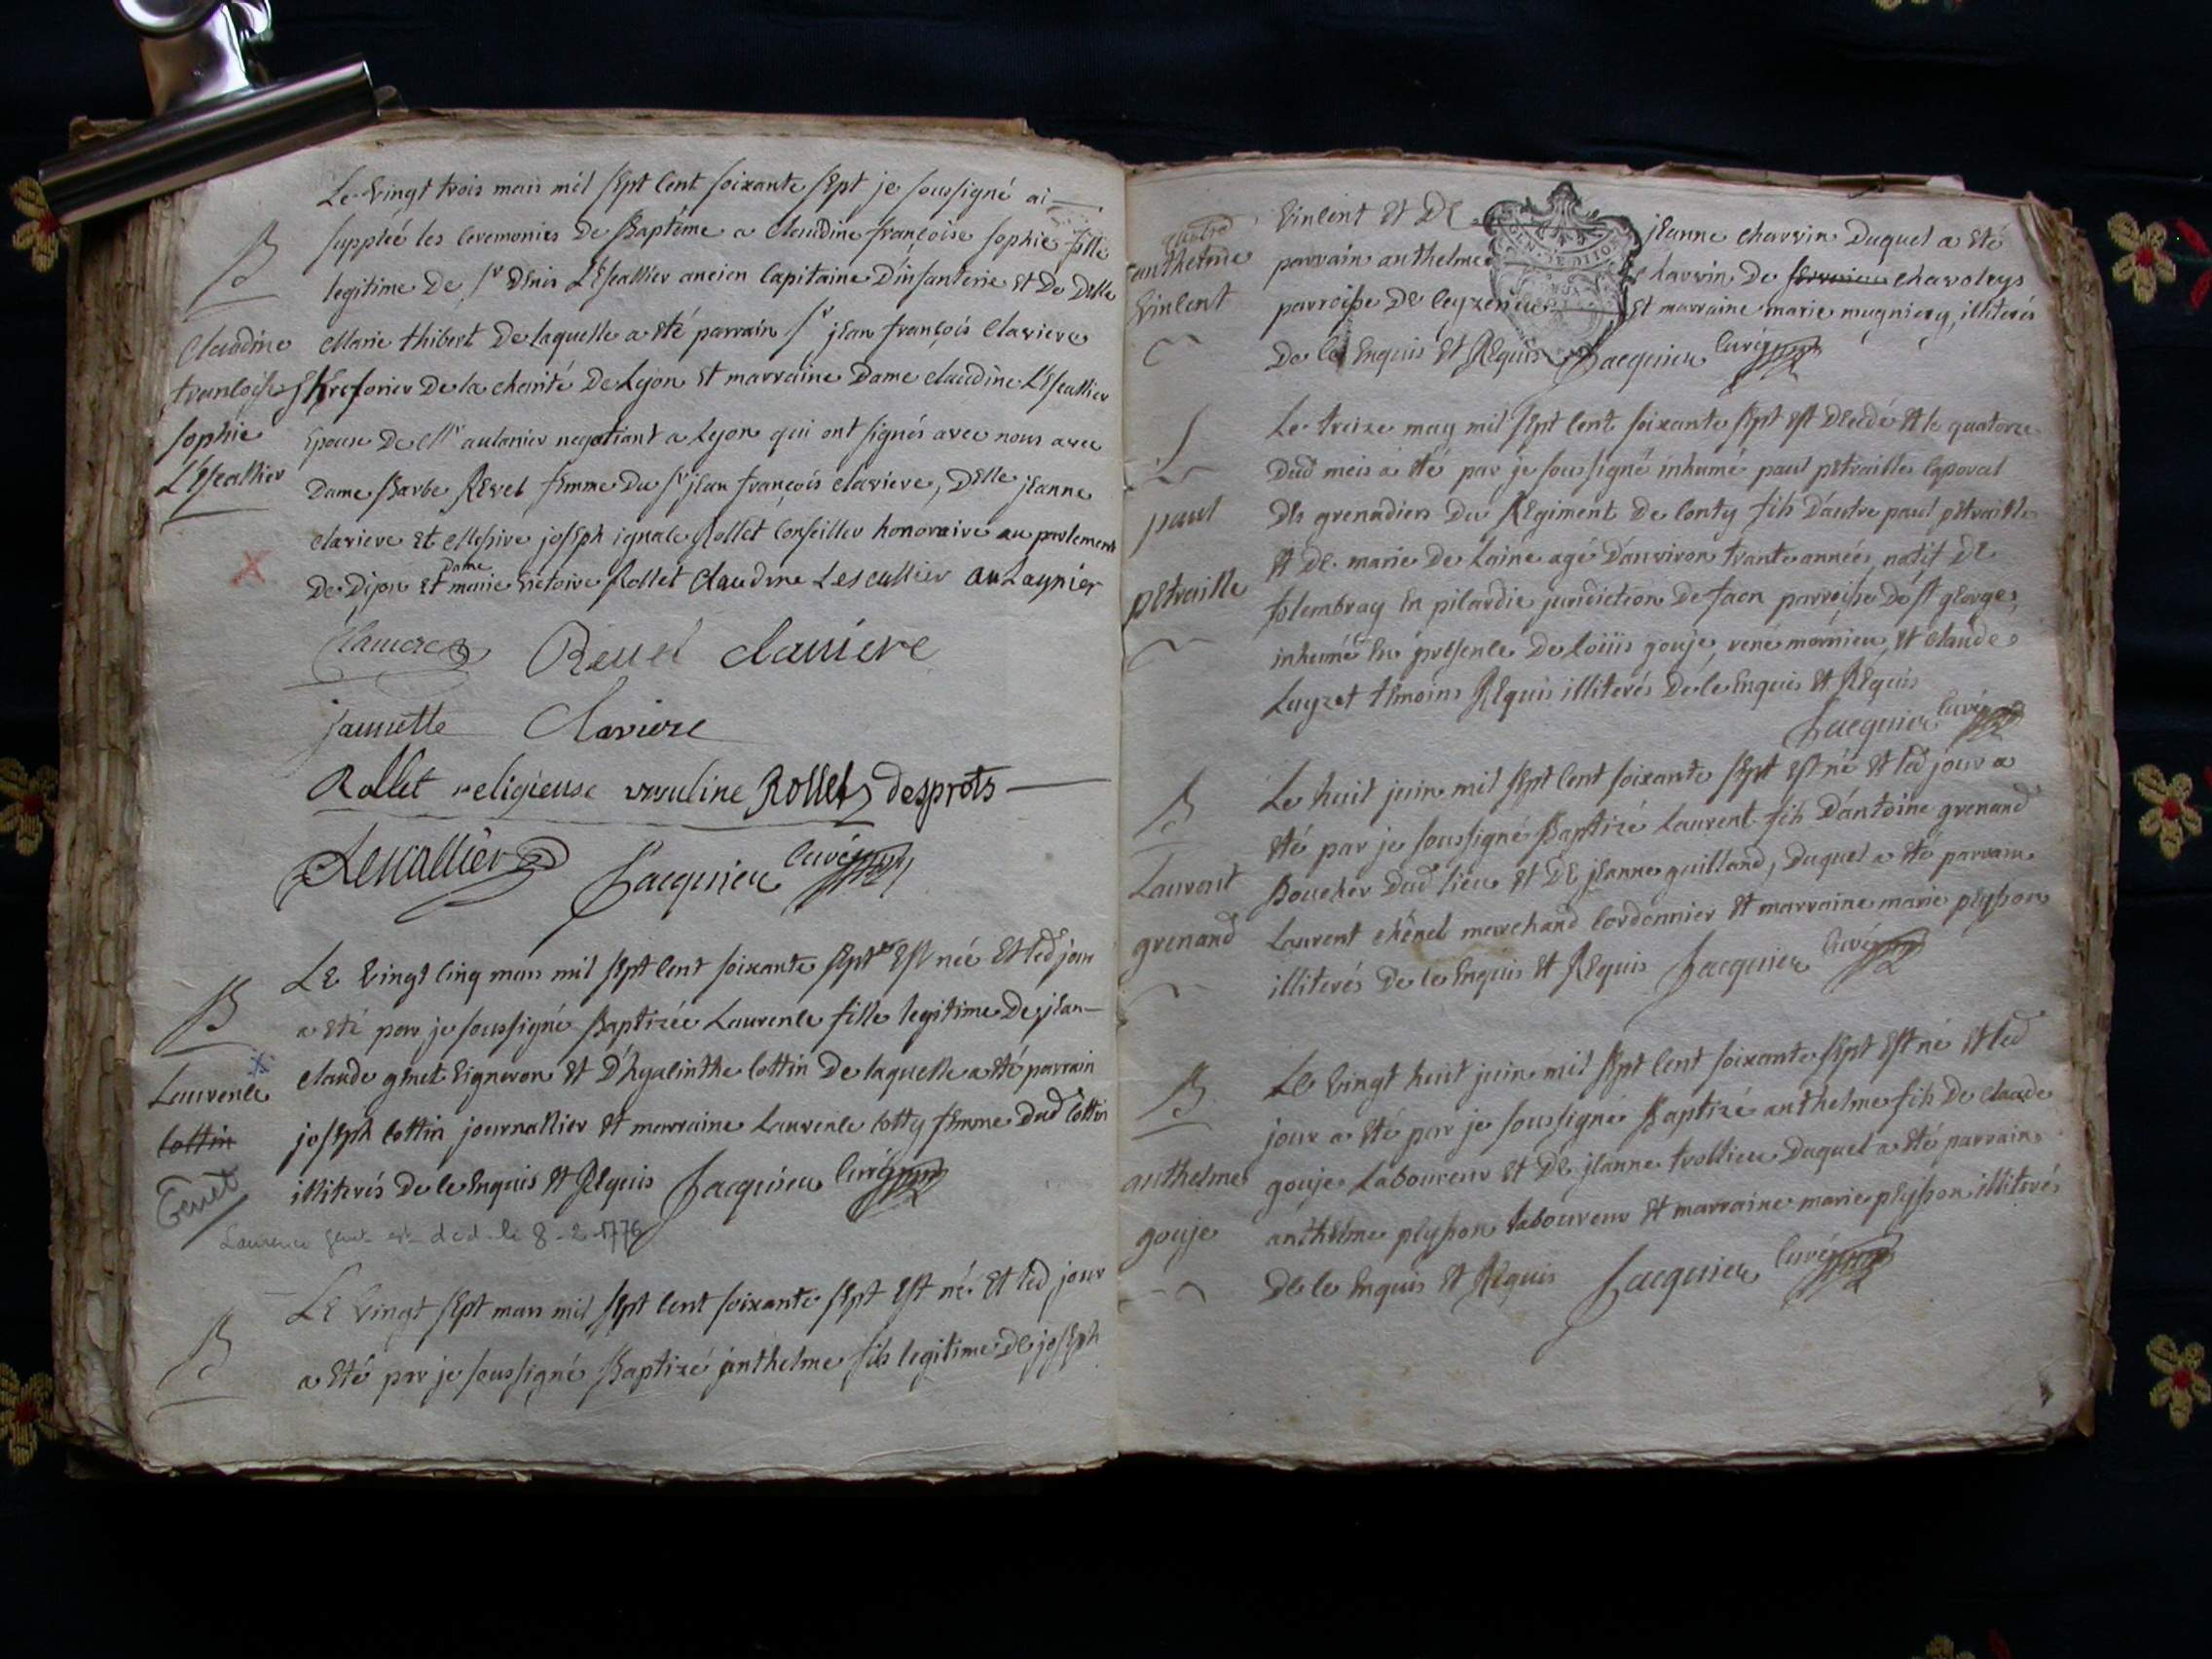 Le vingt trois mars mil sept cent soixante sept je soussigné ai
suppleé les ceremonies de Baptême a claudine françoise sophie fille
legitime de Sr denis L'Escallier ancien capitaine d'infanterie et de Delle
Marie thibert de laquelle a eté parrain Sr jean françois claviere
tresorier de la charité de Lyon et marraine Dame claudine L'Escallier
Epouse de Mr aulanier negotiant a Lyon qui ont signés avec nous avec
Dame Barbe Revel femme du Sr jean françois claviere, Delle jeanne
claviere et Messire joseph ignace Rollet conseiller honoraire au parlement
de Dijon et Dame marie victoire Rollet Claudine Lescallier
B
claudine
françoise
sophie
L'Escallier
Claviere Revel claviere
jannette Claviere
Rollet religieuse ursuline Rollet desprots
Lescallier Jacquier curé
B
Laurence
cottin
Genet
Le vingt cinq mars mil sept cent soixante sept est née et led jour
a eté par je soussigné Baptizée Laurence fille legitime de jean
claude genet vigneron et d'hyacinthe cottin de laquelle a eté parrain
joseph cottin journallier et marraine Laurence cotty femme dud cottin
illiterés de ce Enquis et Requis Jacquier curé
Laurence genet est déd. le 8-2-1776
B
Le vingt sept mars mil sept cent soixante sept est né et led jour
a eté par je soussigné Baptizé anthelme fils legitime de joseph
anthelme
vincent
vincent et de jeanne charvin duquel a eté
parrain anthelme charvin de charoleys
parroisse de ceyzerieu et marraine marie mugniery, illiterés
de ce Enquis et Requis Jacquier curé
S
paul
petraille
Le treize may mil sept cent soixante sept est decedé et le quatorze
dud mois a eté par je soussigné inhumé paul petraille caporal
des grenadiers du Regiment de conty fils d'autre paul petraille
et de marie de laine agé d'anviron trante années, natif de
folembray en picardie juridiction de parroisse de St georges,
inhumé en presence de loüis gouje, rené mornieu, et claude
Luyzet témoins Requis illiterés de ce enquis et Requis
Jacquier curé
B
Laurent
grenand
Le huit juin mil sept cent soixante sept est né et led jour a
eté par je soussigné Baptizé Laurent fils d'antoine grenand
Boucher dud lieu et de jeanne guilland, duquel a eté parrain
Laurent chênel marchand cordonnier et marraine marie plysson
illiterés de ce Enquis et Requis Jacquier curé
B
anthelme
gouje
Le vingt huit juin mil sept cent soixante sept est né et led
jour a eté par je soussigné Baptizé anthelme fils de claude
gouje Laboureur et de jeanne trollieu duquel a eté parrain
anthelme plysson laboureur et marraine marie plysson illiterés
de ce Enquis et Requis Jacquier curé